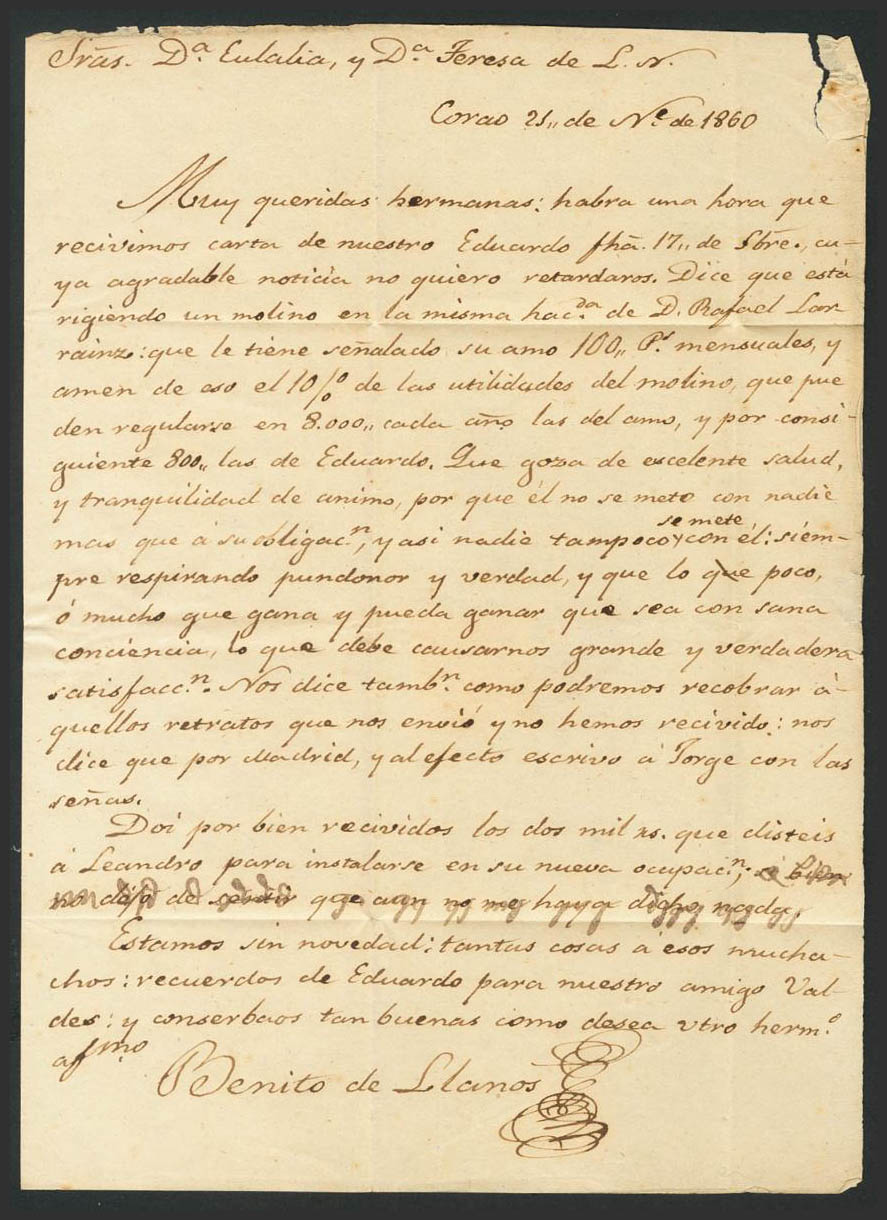 Srãs. D.ª Eulalia, y D.ª Teresa de L. N.
Corao 21,, de N.e de 1860
Muy queridas hermanas: habra una hora que
recivimos carta de nuestro Eduardo fhã. 17,, de Sbre., cu-
ya agradable noticia no quiero retardaros. Dice que está
rigiendo un molino en la misma hac.da de D. Rafael Lar
rainz: que le tiene señalado su amo 100,, P.s mensuales, y
amen de eso el 10 % de las utilidades del molino, que pue
den regularse en 8.000,, cada año las del amo, y por consi-
guiente 800,, las de Eduardo. Que goza de escelente salud,
y tranquilidad de animo, por que él no se mete con nadie
mas que á su obligac.n, y asi nadie tampoco se mete con él: siem-
pre respirando pundonor y verdad, y que lo que poco,
ó mucho que gana y pueda ganar que sea con sana
conciencia, lo que debe causarnos grande y verdadera
satisfacc.n. Nos dice tamb.n como podremos recobrar á-
quellos retratos que nos envió y no hemos recivido: nos
dice que por Madrid, y al efecto escrivo á Jorge con las
señas.
Doi por bien recividos los dos mil rs. que disteis
á Leandro para instalarse en su nueva ocupac.n;
no dejo de sentir que aun no me haya dicho nada.
Estamos sin novedad: tantas cosas a esos mucha-
chos: recuerdos de Eduardo para nuestro amigo Val-
des: y conserbaos tan buenas como desea vtro herm.o
af.mo
Benito de Llanos